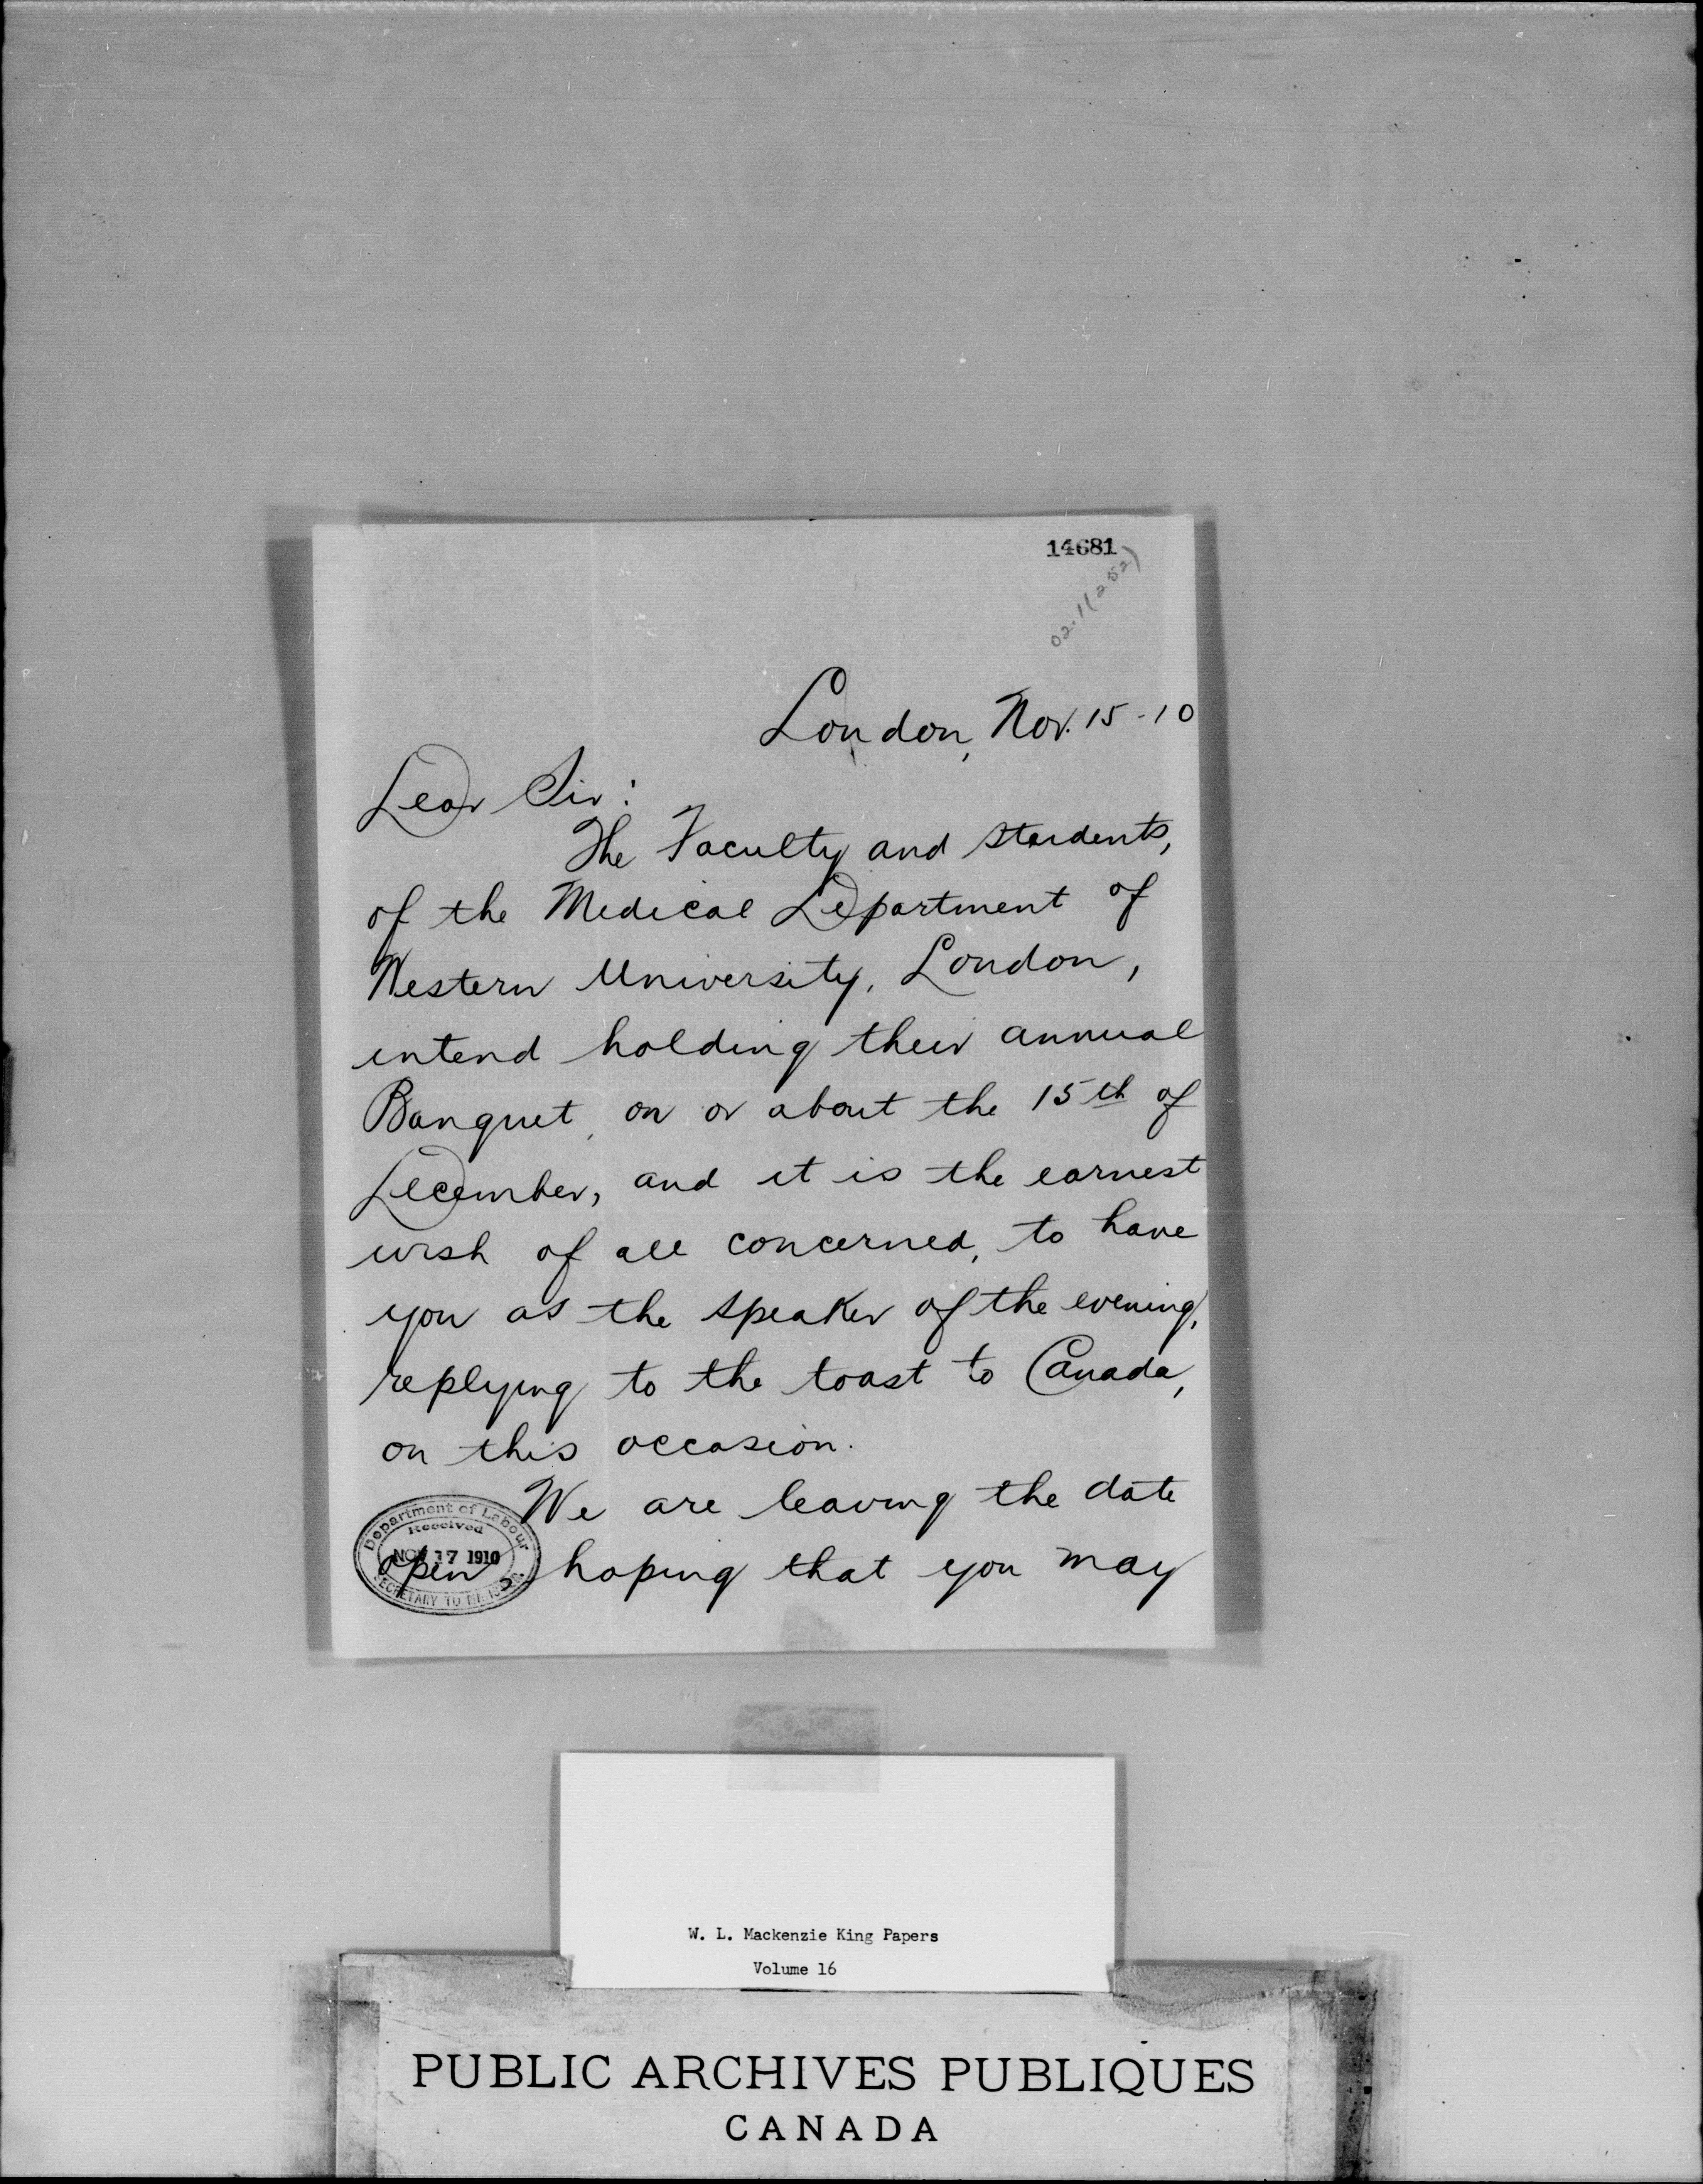 14681
02.1(252)
London, Nov. 15-10
Dear Sir:
The Faculty and students,
of the Medical Department of
Western University, London,
intend holding their annual
Banquet, on or about the 15th of
December, and it is the earnest
wish of all concerned, to have
you as the speaker of the evening,
replying to the toast to Canada,
on this occasion.
We are leaving the date
open, hoping that you may
Department of Labour
Received
NOV 17 1910
SECRETARY TO
W. L. Mackenzie King Papers
Volume 16
PUBLIC ARCHIVES PUBLIQUES
CANADA